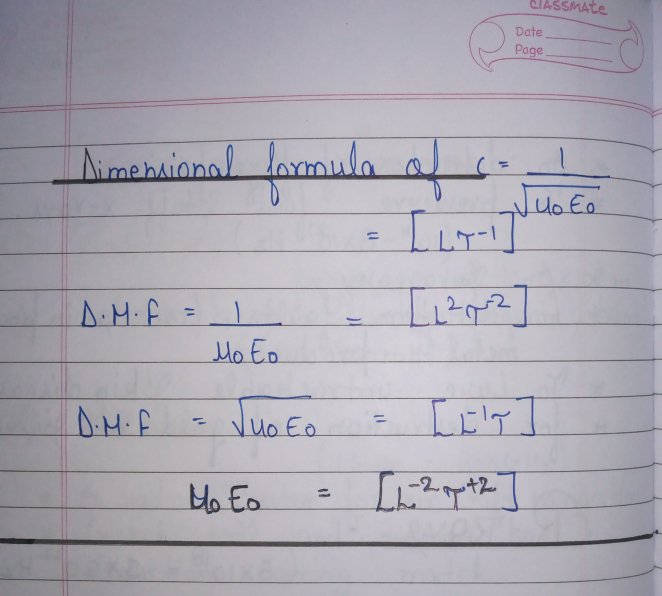 CLASSMATE
Date
Page
Dimensional formula of c = 1/√μ0E0
= [LT⁻¹]
D.M.F = 1/μ0E0 = [L²T⁻²]
D.M.F = √μ0E0 = [L⁻¹T]
μ0E0 = [L⁻²T⁺²]